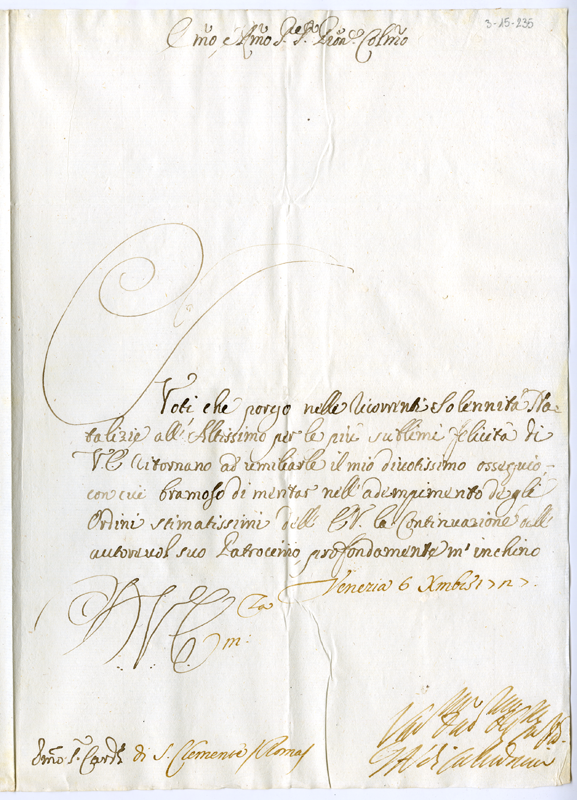 3-15-235
Emo, e Rmo Sr. Sr. Pron. Colmo
I Voti che porgo nelle ricorrenti Solennità Na-
talizie all' Altissimo per le più sublimi felicità di
V.E. ritornano ad umiliarle il mio divotissimo ossequio,
con cui bramoso di meritar nell' adempimento degli
Ordini stimatissimi dell' E.V. la Continuazione dell'
autorevol suo Patrocinio profondamente m' inchino
Venezia 6 Xmbre
D V. E. za
m:
Emo Sr. Card. di S. Clemente / Roma /